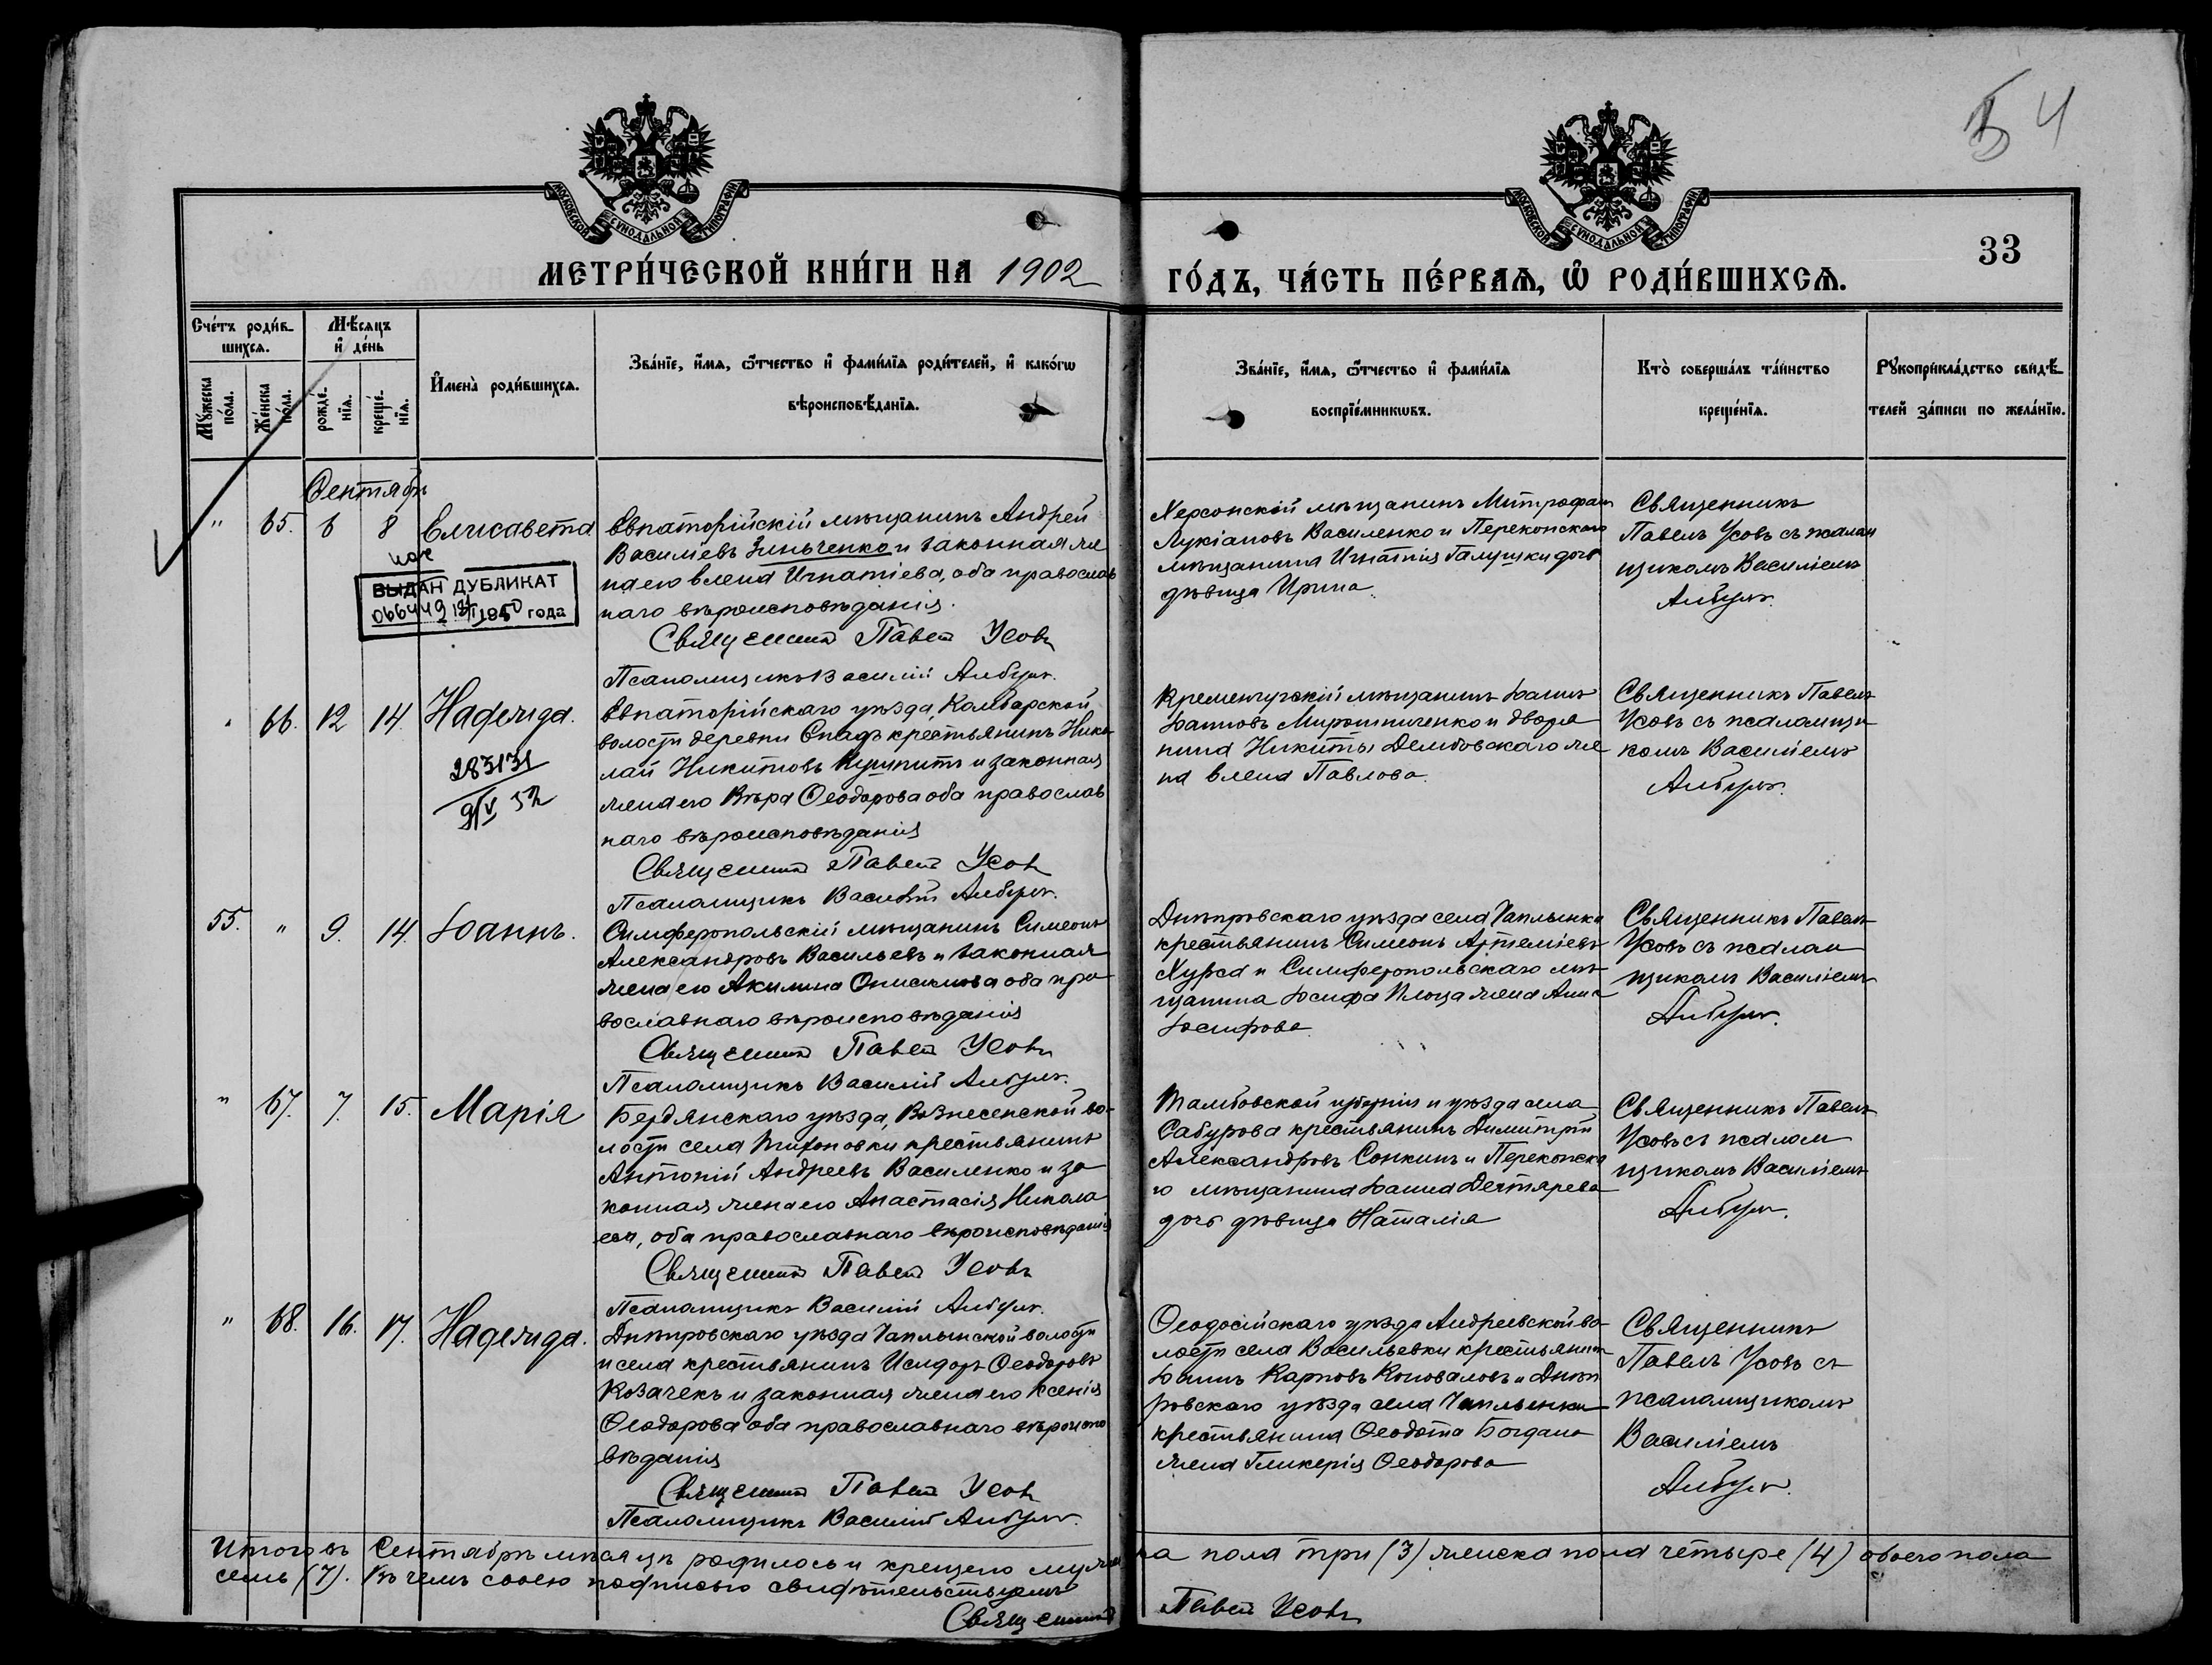 54
МОСКОВСКОЙ СѴНОДАЛЬНОЙ ТИПОГРАФІИ
МОСКОВСКОЙ СѴНОДАЛЬНОЙ ТИПОГРАФІИ
33
МЕТРИ́ЧЕСКОЙ КНИ́ГИ НА 1902 ГО́ДЪ, ЧА́СТЬ ПЕ́РВАѦ, Ѡ҆ РОДИ́ВШИХСѦ.
Сче́тъ роди́в-
шихсѧ.
Мѣ́сѧцъ
и҆ де́нь
Мꙋ́жеска
по́ла.
Же́нска
по́ла.
рожде́-
нїѧ.
креще́-
нїѧ.
И҆мена̀ роди́вшихсѧ.
Зва́нїе, и҆́мѧ, ѻ҆́тчество и҆ фами́лїѧ роди́телей, и҆ како́гѡ
вѣроисповѣ́данїѧ.
Зва́нїе, и҆́мѧ, ѻ҆́тчество и҆ фами́лїѧ
воспрїе́мникѡвъ.
Кто̀ соверша́лъ та́инство
креще́нїѧ.
Рꙋкоприкла́дство свидѣ́-
телей за́писи по жела́нїю.
Сентябрь
" 65. 6 8 Елисавета
ВЫДАН ДУБЛИКАТ
066449 1950 года
Евпаторійскій мѣщанинъ Андрей
Василіевъ Зинченко и законная же
на его Елена Игнатіева, оба православ
наго вѣроисповѣданія.
Священникъ Павелъ Усовъ
Псаломщикъ Василій
Херсонскій мѣщанинъ Митрофан
Лукіановъ Василенко и Перекопскаго
мѣщанина Игнатія Галушки дочь
дѣвица Ирина.
Священникъ
Павелъ Усовъ съ псалом
щикомъ Василіемъ
" 66. 12 14 Надежда.
283131
9/V 52
Евпаторійскаго уѣзда,
волости деревни крестьянинъ Нико
лай Никитовъ и законная
жена его Вѣра Ѳеодорова оба православ
наго вѣроисповѣданія
Священникъ Павелъ Усовъ
Псаломщикъ Василій
Кременчугскій мѣщанинъ Іоаннъ
Іоанновъ Мирошниченко и дворя
нина Никиты же
на Елена Павлова.
Священникъ Павелъ
Усовъ съ псаломщи
комъ Василіемъ
55. " 9. 14. Іоаннъ.
Симферопольскій мѣщанинъ Симеонъ
Александровъ Васильевъ и законная
жена его Акилина Онисимова оба пра
вославнаго вѣроисповѣданія
Священникъ Павелъ Усовъ
Псаломщикъ Василій
Днѣпровскаго уѣзда села Чаплынки
крестьянинъ Симеонъ Артеміевъ
Хурса и Симферопольскаго мѣ
щанина Іосифа жена Анна
Іосифова
Священникъ Павелъ
Усовъ съ псалом
щикомъ Василіемъ
" 67. 7. 15. Марія
Бердянскаго уѣзда, Вознесенской во-
лости села Тихоновки крестьянинъ
Антоній Андреевъ Василенко и за
конная жена его Анастасія Никола
ева, оба православнаго вѣроисповѣданія
Священникъ Павелъ Усовъ
Псаломщикъ Василій
Тамбовской губерніи и уѣзда села
Сабурова крестьянинъ Димитрій
Александровъ Сонкинъ и Перекопска
го мѣщанина Іоанна Дегтярева
дочь дѣвица Наталія
Священникъ Павелъ
Усовъ съ псалом
щикомъ Василіемъ
" 68. 16. 17. Надежда.
Днѣпровскаго уѣзда Чаплынской волости
и села крестьянинъ Исидоръ Ѳеодоровъ
Козачекъ и законная жена его Ксенія
Ѳеодорова оба православнаго вѣроиспо
вѣданія
Священникъ Павелъ Усовъ
Псаломщикъ Василій
Ѳеодосійскаго уѣзда Андреевской во-
лости села Васильевки крестьянинъ
Іоаннъ Карповъ Коноваловъ и Днѣп
ровскаго уѣзда села Чаплынки
крестьянина Ѳеодота Богдана
жена Гликерія Ѳеодорова
Священникъ
Павелъ Усовъ съ
псаломщикомъ
Василіемъ
Итого въ Сентябрѣ мѣсяцѣ родилось и крещено мужеска пола три (3) женска пола четыре (4) обоего пола
семь (7). Въ чемъ своею подписью свидѣтельствуемъ
Священникъ Павелъ Усовъ